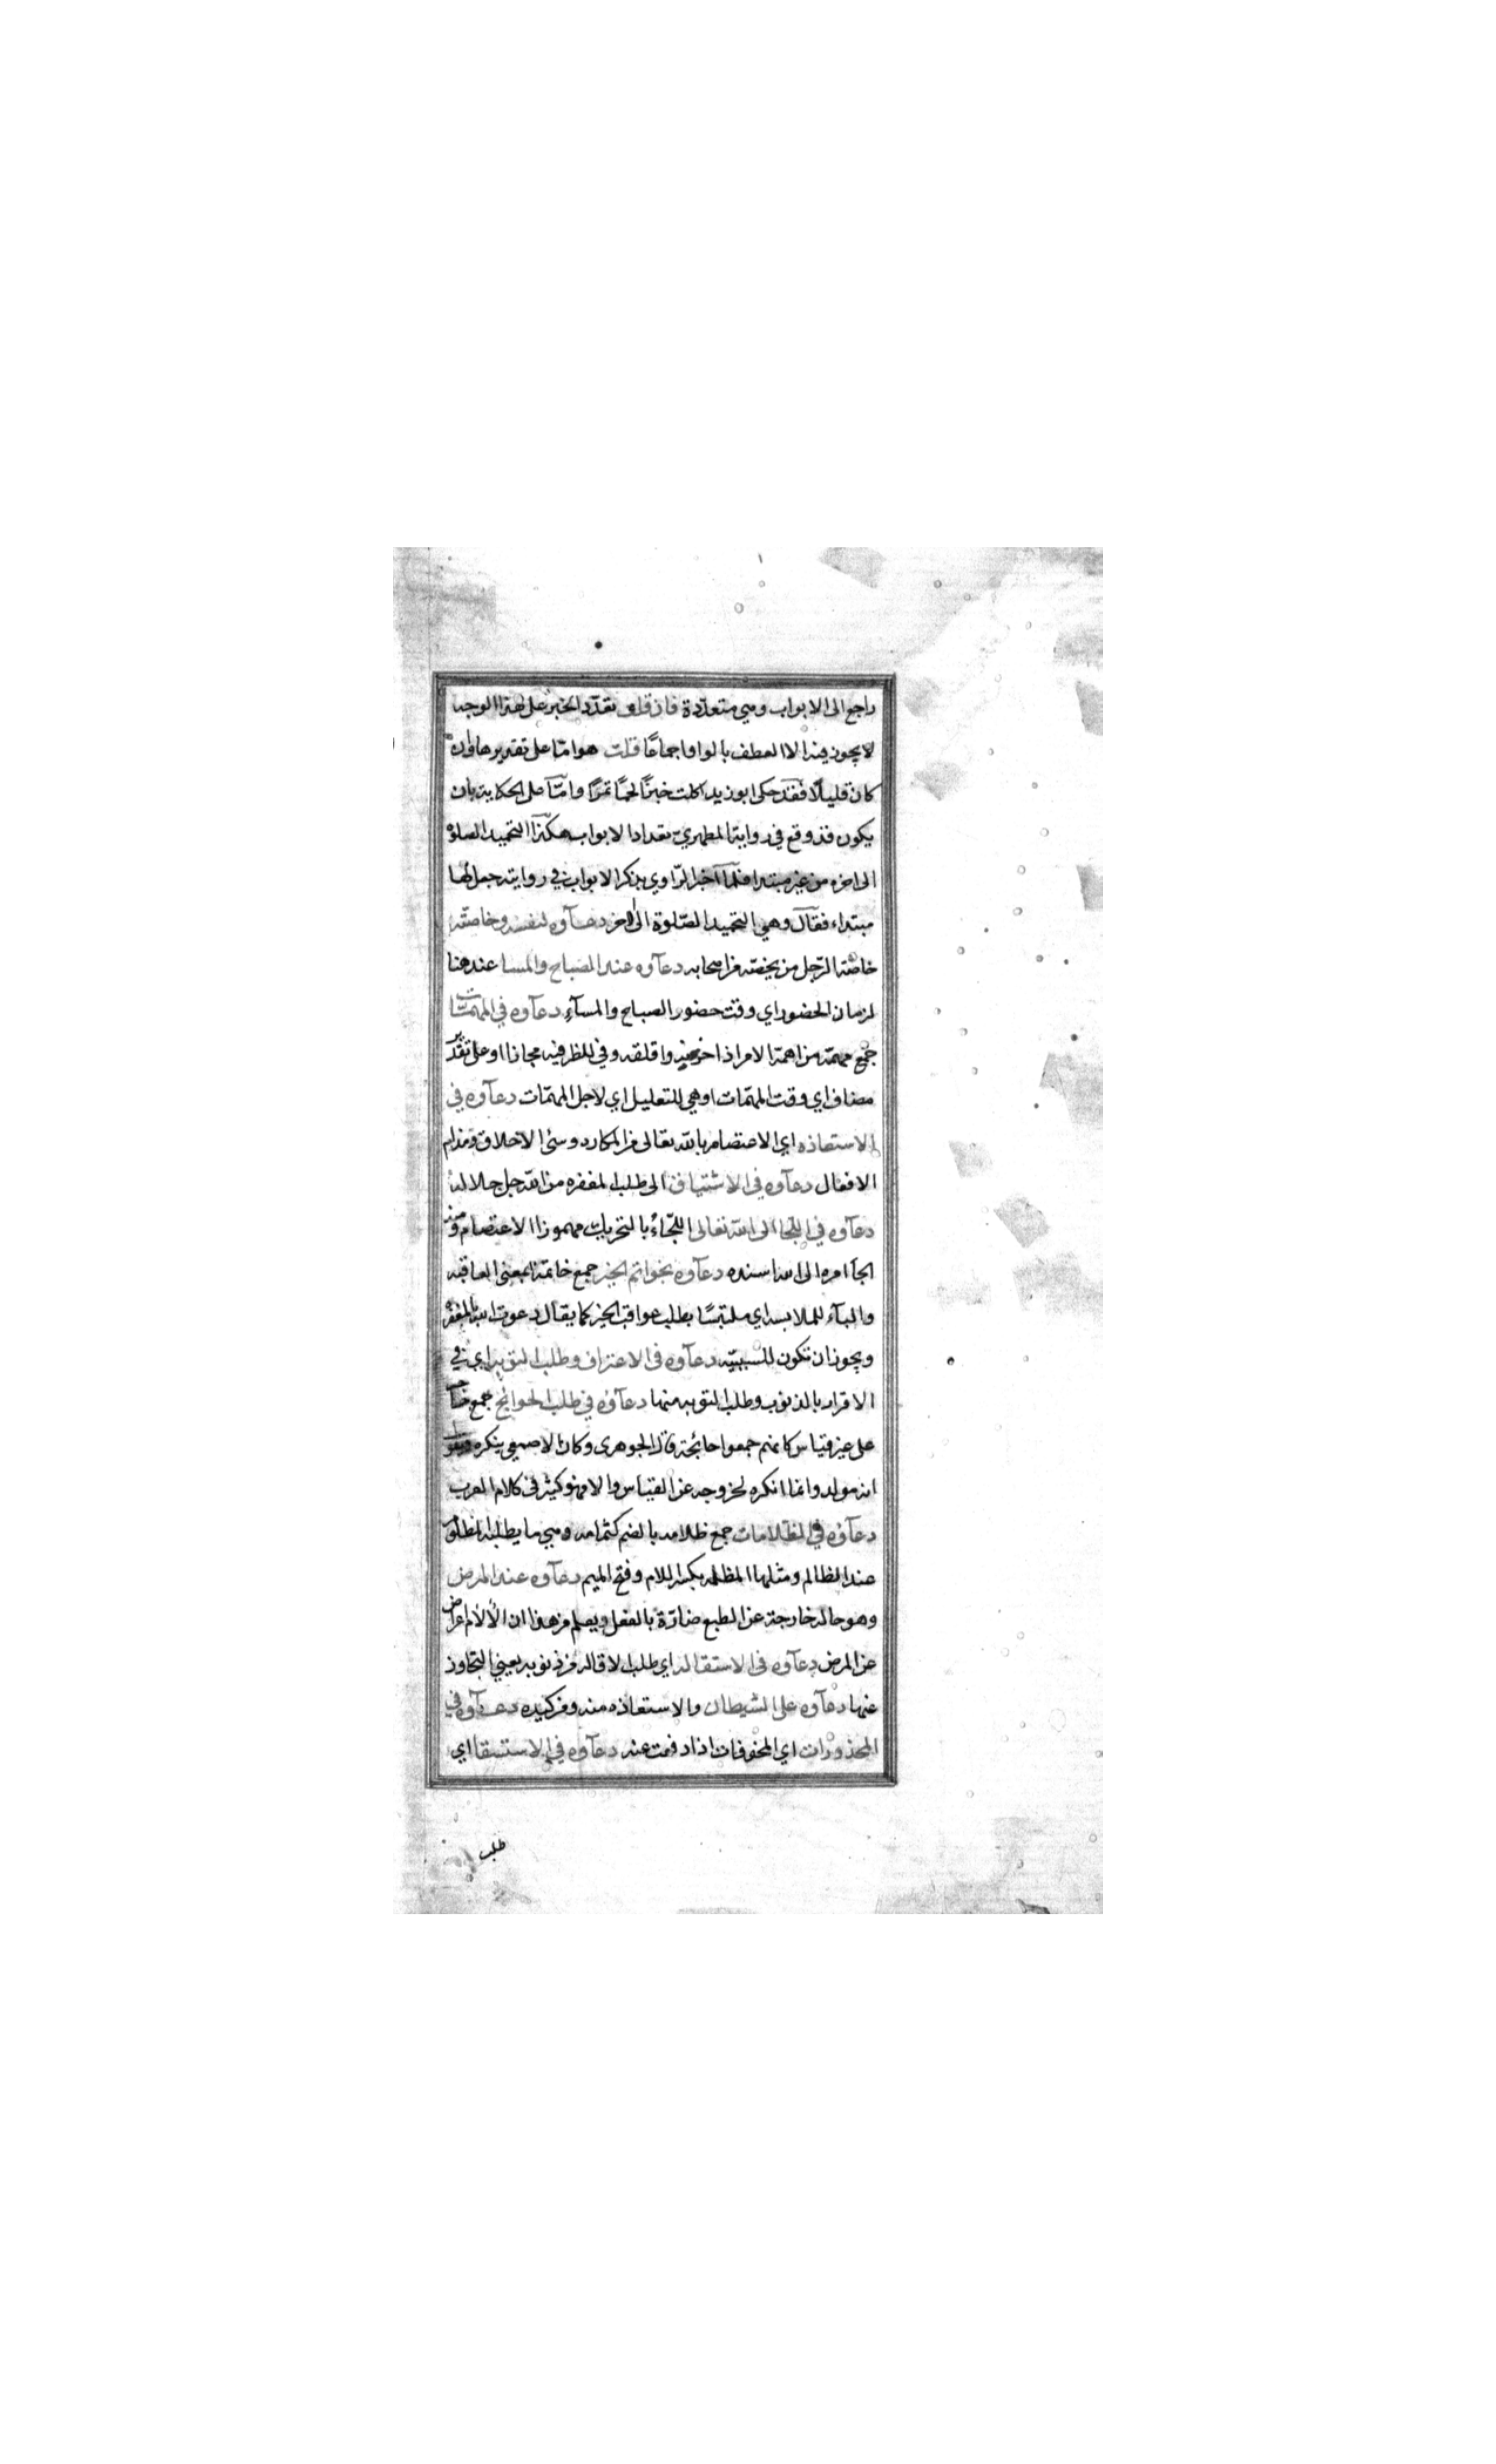 راجع الى الابواب وهي متعدّدة فان قلت تعدّد الخبر على هذا الوجه
لا يجوز فيه الا العطف بالواو اجماعًا قلت هو امّا على تقديرها وان
كان قليلًا فقد حكى ابو زيد اكلت خبزًا لحمًا تمرًا وامّا على الحكاية بان
يكون قد وقع في رواية المطهري تعداد الابواب هكذا التحميد الصلوة
الى اخره من غير مبتدا فلمّا اخذ الرّاوي بذكر الابواب في روايته جعل لها
مبتداء فقال وهي التحميد الصّلوة الى اخر دعآؤه لنفسه وخاصّته
خاصّة الرّجل من يخصّه من اصحابه دعآؤه عند الصباح والمسا عند هنا
لزمان الحضور اي وقت حضور الصباح والمسآء دعآؤه في المهمّات
جمع مهمّة من اهمّه الامر اذا احزنه واقلقه وفي للظرفيه مجازا او على تقدير
مضاف اي وقت المهمّات او هي للتعليل اي لاجل المهمّات دعآؤه في
الاستعاذه اي الاعتصام بالله تعالى من المكاره وسئ الاخلاق ومذام
الافعال دعآؤه في الاشتياق الى طلب المغفره من الله جل جلاله
دعآؤه في اللّجا الى الله تعالى اللّجاء بالتحريك مهموزا الاعتصام ومنه
الجأ امره الى الله اسنده دعآؤه بخواتم الخير جمع خاتمة بمعنى العاقبه
والبآء للملابسه اي ملتبسًا بطلب عواقب الخير كما يقال دعوت الله بالمغفره
ويجوز ان تكون للسببيّه دعآؤه فى الاعتراف وطلب التوبه اي في
الاقرار بالذنوب وطلب التوبه منها دعآؤه في طلب الحوائج جمع حاجة
على غير قياس كانهم جمعوا حائجة قال الجوهرى وكان الاصمعي ينكره ويقول
انه مولد وانما انكره لخروجه عن القياس والا فهو كثير في كلام العرب
دعآؤه في الظلامات جمع ظلامه بالضم كثمامه وهي ما يطلبه المظلوم
عند الظالم ومثلها المظلمه بكسر اللام وفتح الميم دعآؤه عند المرض
وهو حاله خارجة عن الطبع ضارّة بالفعل ويعلم من هذا ان الألام اعراض
عن المرض دعآؤه فى الاستقاله اي طلب الاقاله من ذنوبه يعني التجاوز
عنها دعآؤه على الشيطان والاستعاذه منه ومن كيده دعآؤه في
المحذورات اي المخوفات اذا دفعت عنه دعآؤه في الاستسقا اي
طلب